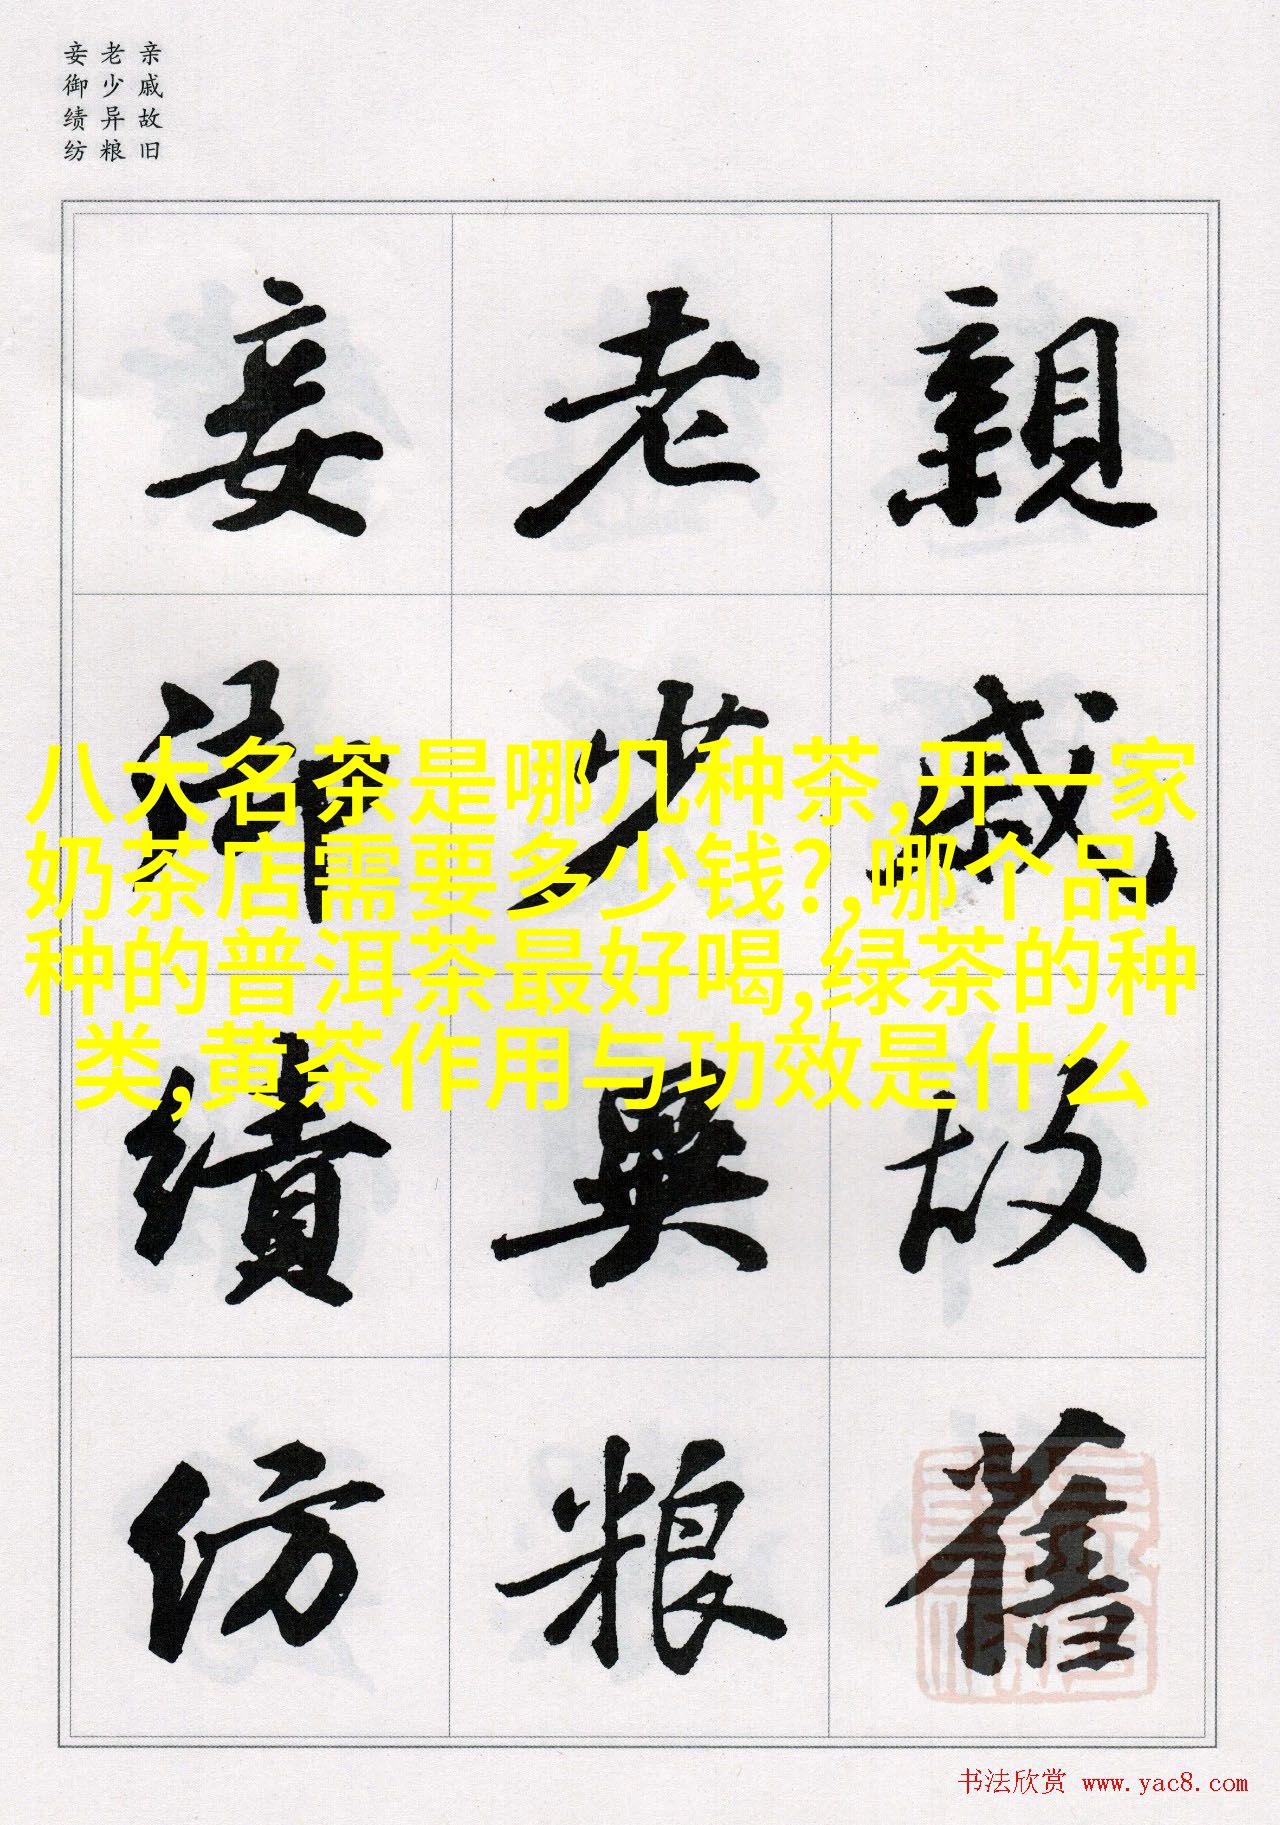 亲戚故旧
老少异粮
妾御绩纺
親戚故舊
老少異粮
妾御績紡
八大名茶是哪几种茶,开一家
奶茶店需要多少钱?,哪个品
种的普洱茶最好喝,绿茶的种
类,黄茶作用与功效是什么
书法欣赏 www.yac8.com